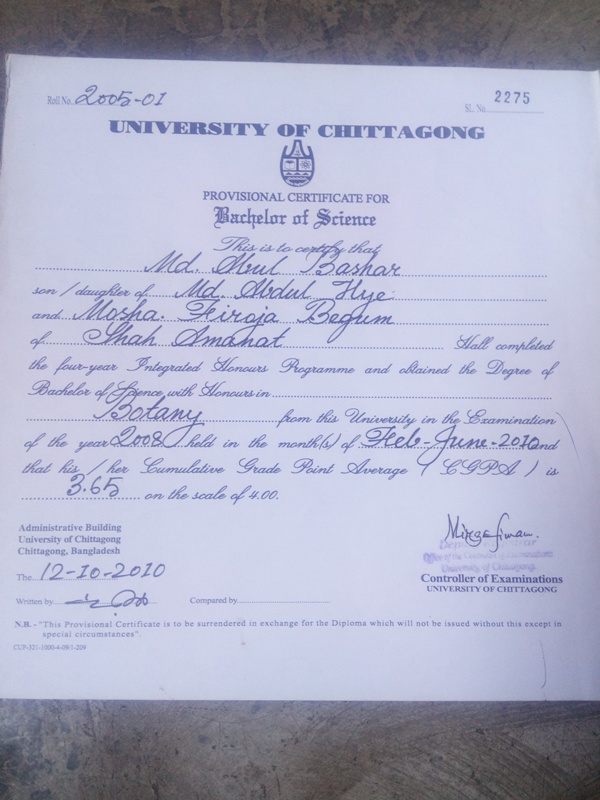 Roll No. 2005-01
SL. No. 2275
UNIVERSITY OF CHITTAGONG
PROVISIONAL CERTIFICATE FOR
Bachelor of Science
This is to certify that
Md. Abul Bashar
son / daughter of Md. Abdul Hye
and Mosha. Firoja Begum
of Shah Amanat Hall completed
the four-year Integrated Honours Programme and obtained the Degree of
Bachelor of Science with Honours in
Botany from this University in the Examination
of the year 2008 held in the month(s) of Feb-June-2010 and
that his / her Cumulative Grade Point Average ( CGPA ) is
3.65 on the scale of 4.00.
Administrative Building
University of Chittagong
Chittagong, Bangladesh
The 12-10-2010
Written by
Compared by
Office of the Controller of Examinations
University of Chittagong
Controller of Examinations
UNIVERSITY OF CHITTAGONG
N.B. - "This Provisional Certificate is to be surrendered in exchange for the Diploma which will not be issued without this except in
special circumstances".
CUP-321-1000-4-09/1-209